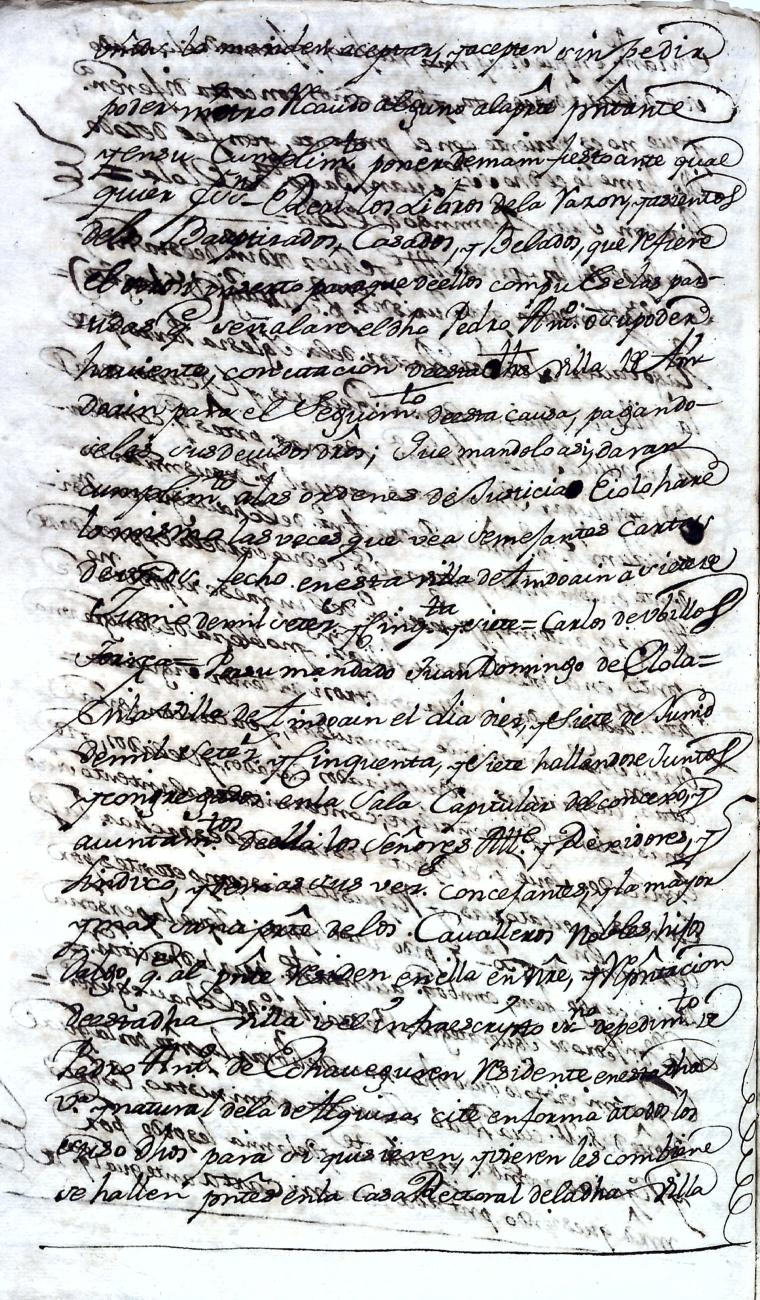 la manden aceptar, y acepten sin pedir
poder, ni otro Rcaudo alguno ala pte pntante
y en su Cumplim.to poner de manifiesto ante qual
quier Ssno Rl los Libros de la Razon, y asientos
de los Bauptizados, Casados, y Velados, que refiere
el inserto para que de ellos compulse las par-
tidas q.e señalare el dho Pedro Ant.o o su poder
haviente, con citacion de esta dha Villa de An-
doain para el Seguim.to de esta causa, pagando-
seles sus devidos drôs; Que mandolo asi, daran
cumplim.to a las ordenes de Justicia, E io lo haré
lo mismo las veces que vea semejantes Cartas
de fecho en esta villa de Andoain a siete de
Junio de mil setez.s y Cinq.ta y siete = Carlos de Ubillos
= Por su mandado Juan Domingo de Elola =
En la Villa de Andoain el dia diez, y siete de Junio
de mil setez.s y Cinquenta, y siete hallandose Juntos
y congregados en la Sala Capitular del concexo, y
aiuntam.tos de ella los Señores Alc.e y Rexidores, y
Sindico, y demas sus vez.s concejantes, y la mayor
y mas sana prte de los Cavalleros Nobles, hijos
Dalgo, q. al pnte Residen en ella en Nre, y Rpntacion
de esta dha Villa io el infraescripto ss.no de pedim.to de
Pedro Ant.o de Echaveguren Residente en esta dha
V.a y natural de la de Alquiza, cite en forma a todos los
suso dhos para si quisieren, y vieren les combiene
se hallen pntes en la Casa Rectoral de la dha Villa